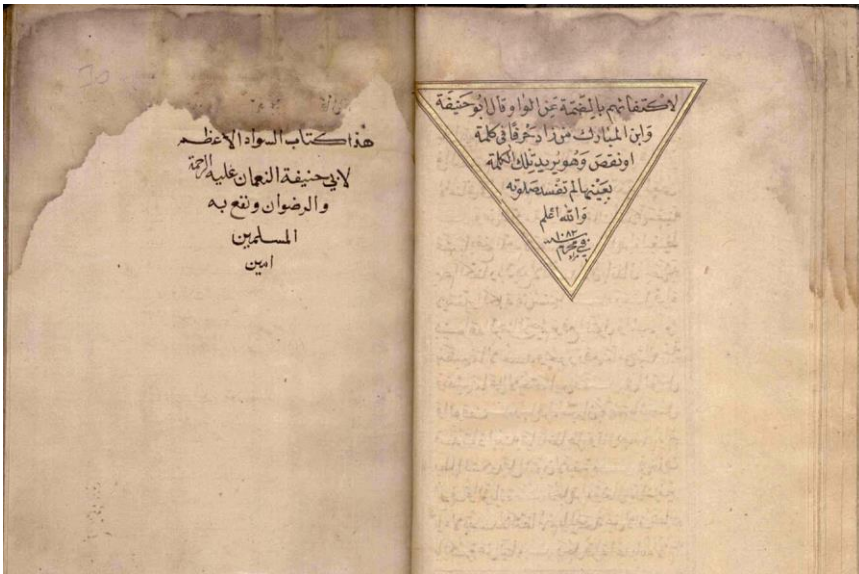 لاكتفائهم بالضمة عن الواو قال ابو حنيفة
وابن المبارك من زاد حرفا في كلمة
او نقص وهو يريد تلك الكلمة
بعينها لم تفسد صلوته
والله اعلم
في محرم
١٠٨٣
هذا كتاب السواد الاعظم
لابي حنيفة النعمان عليه الرحمة
والرضوان ونفع به
المسلمين
امين